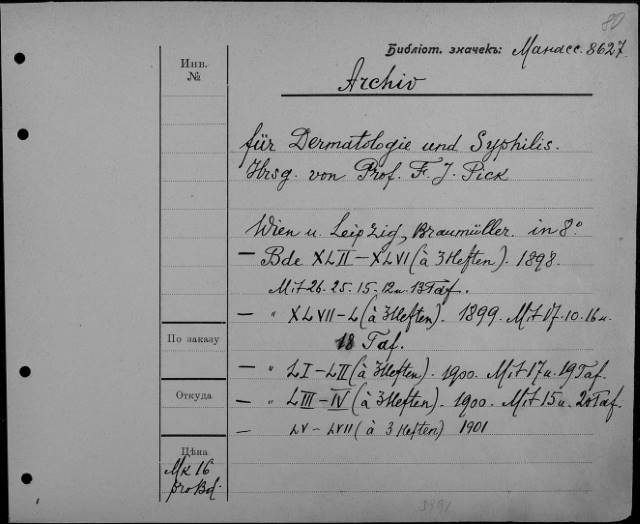 80
Библіот. значекъ: Манасс. 8627.
Инв.
№
Archiv
für Dermatologie und Syphilis.
Hrsg. von Prof. F. J. Pick
Wien u. Leipzig, Braumüller. in 8°
— Bde XLII—XLVI (à 3 Heften). 1898.
Mit 26. 25. 15. 12 u. 13 Taf.
— " XLVII—L (à 3 Heften). 1899. Mit 17. 10. 16 u.
18 Taf.
По заказу
— " LI—LII (à 3 Heften). 1900. Mit 17 u. 19 Taf.
Откуда
— " LIII—IV (à 3 Heften). 1900. Mit 15 u. 20 Taf.
— LV—LVII (à 3 Heften) 1901
Цѣна
Mk 16
pro Bd.